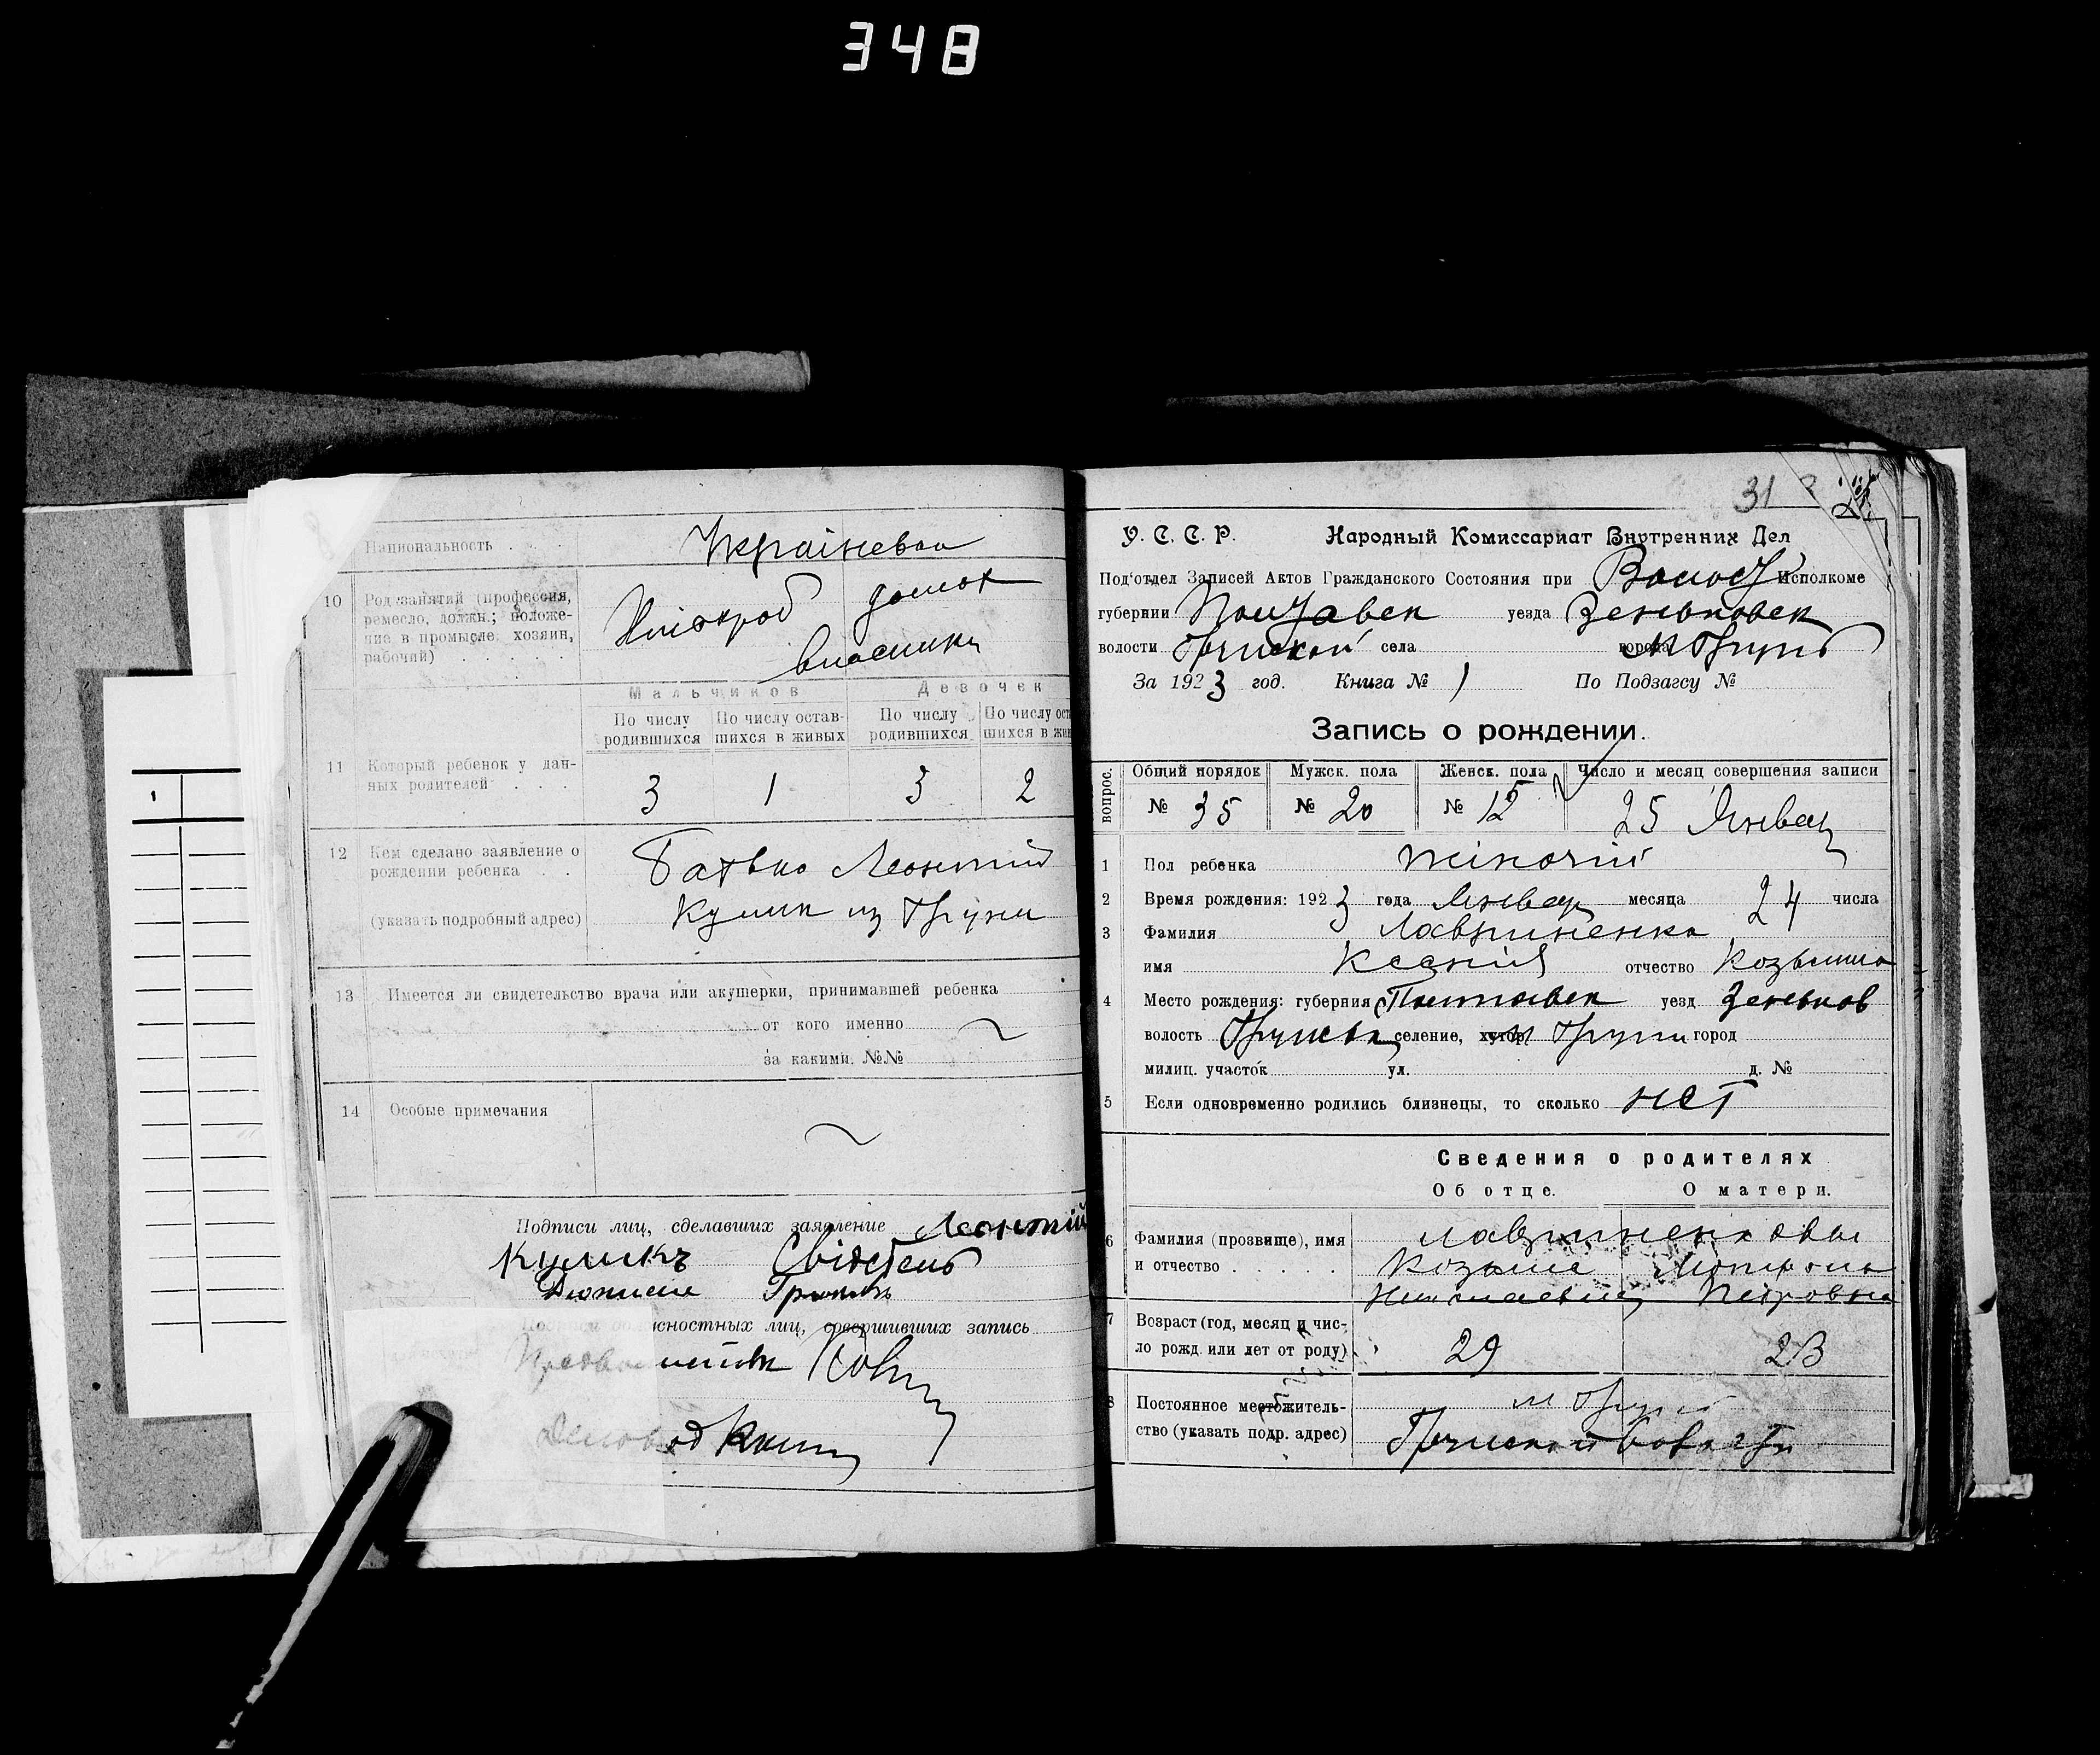 348
Национальность . . . Українская
10 Род занятий (профессия, ремесло, должн.; положение в промысле: хозяин, рабочий) . . . . . Хлібороб домох
власники
Мальчиков Девочек
По числу родившихся По числу оставшихся в живых По числу родившихся По числу оставшихся в жи
11 Который ребенок у данных родителей . . . 3 1 3 2
12 Кем сделано заявление о рождении ребенка . . Батько Леонтий
(указать подробный адрес) Кулик из Груни
13 Имеется ли свидетельство врача или акушерки, принимавшей ребенка
от кого именно
за какими №№
14 Особые примечания
Подписи лиц, сделавших заявление Леонтій
Куликъ Свідетель
совершивших запись
31
У. С. С. Р. Народный Комиссариат Внутренних Дел
Под'отдел Записей Актов Гражданского Состояния при Волост Исполкоме
губернии Полтавск уезда Зеньковск
волости Грунской села города М Грунь
За 1923 год. Книга № 1 По Подзагсу №
Запись о рождении.
вопрос. Общий порядок Мужск. пола Женск. пола Число и месяц совершения записи
№ 35 № 20 № 15 25 Января
1 Пол ребенка жіночій
2 Время рождения: 1923 года Января месяца 24 числа
3 Фамилия Лавриненко
имя Ксенія отчество Козьмина
4 Место рождения: губерния Полтавск уезд Зеньков
волость Грунська селение, хутор м Груни город
милиц. участок ул. д. №
5 Если одновременно родились близнецы, то сколько нет
Сведения о родителях
Об отце. О матери.
6 Фамилия (прозвище), имя и отчество . . . . Лавриненковы
Козьма Мотрона
Петровна
7 Возраст (год, месяц и число рожд. или лет от роду) 29 23
8 Постоянное местожительство (указать подр. адрес) м Грунь
Грунской Волости